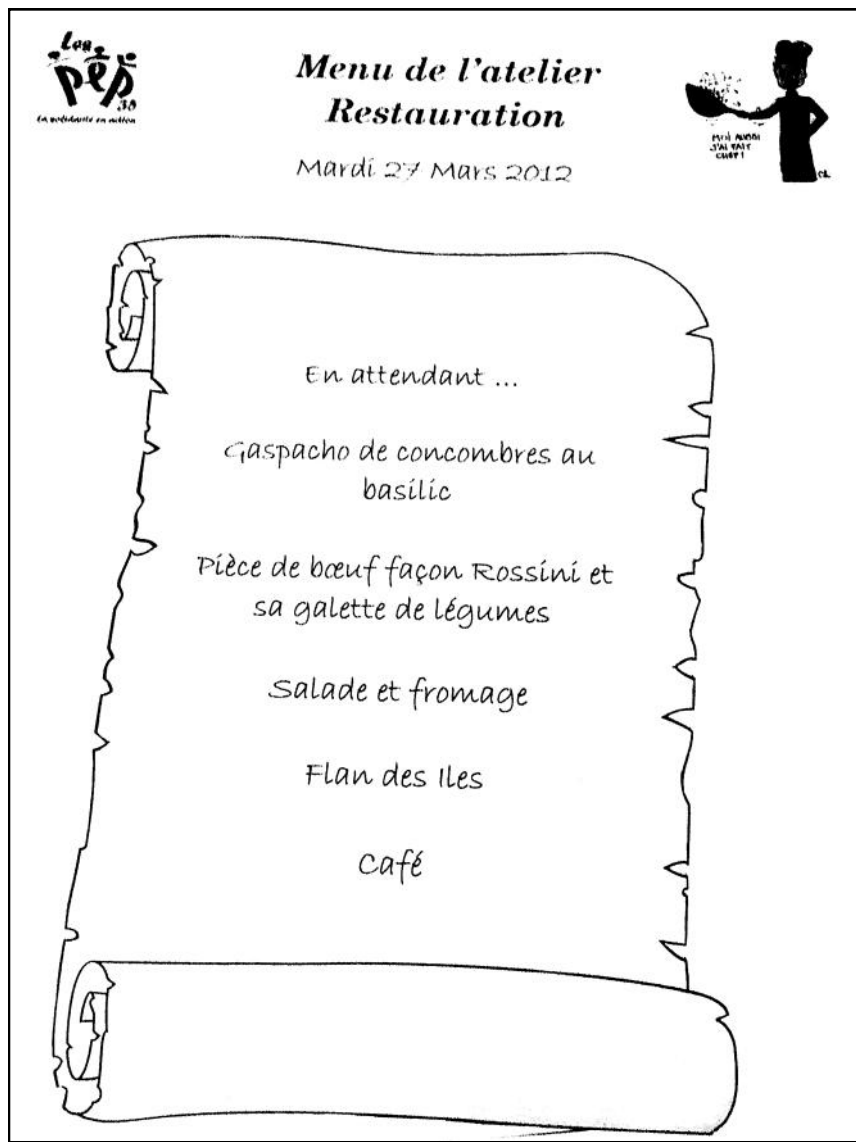 Les
pep
38
La solidarité en action
Menu de l'atelier
Restauration
Mardi 27 Mars 2012
MOI AUSSI
J'AI FAIT
CHEF !
En attendant ...
Gaspacho de concombres au
basilic
Pièce de bœuf façon Rossini et
sa galette de légumes
Salade et fromage
Flan des Iles
Café